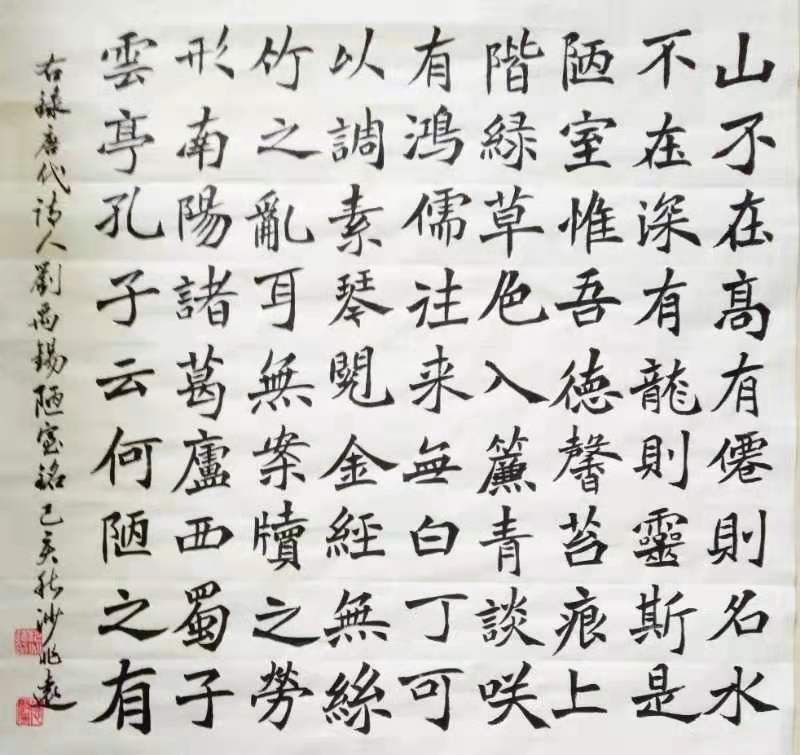 山不在髙有僊則名水
不在深有龍則靈斯是
陋室惟吾徳馨苔痕上
階緑草色入簾青談咲
有鴻儒往来無白丁可
以調素琴閱金經無絲
竹之亂耳無案牘之勞
形南陽諸葛廬西蜀子
雲亭孔子云何陋之有
右録唐代詩人劉禹錫陋室銘己亥秋沙兆遠